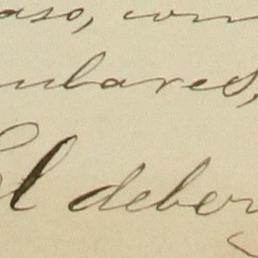 aso, con
ulares,
El deber